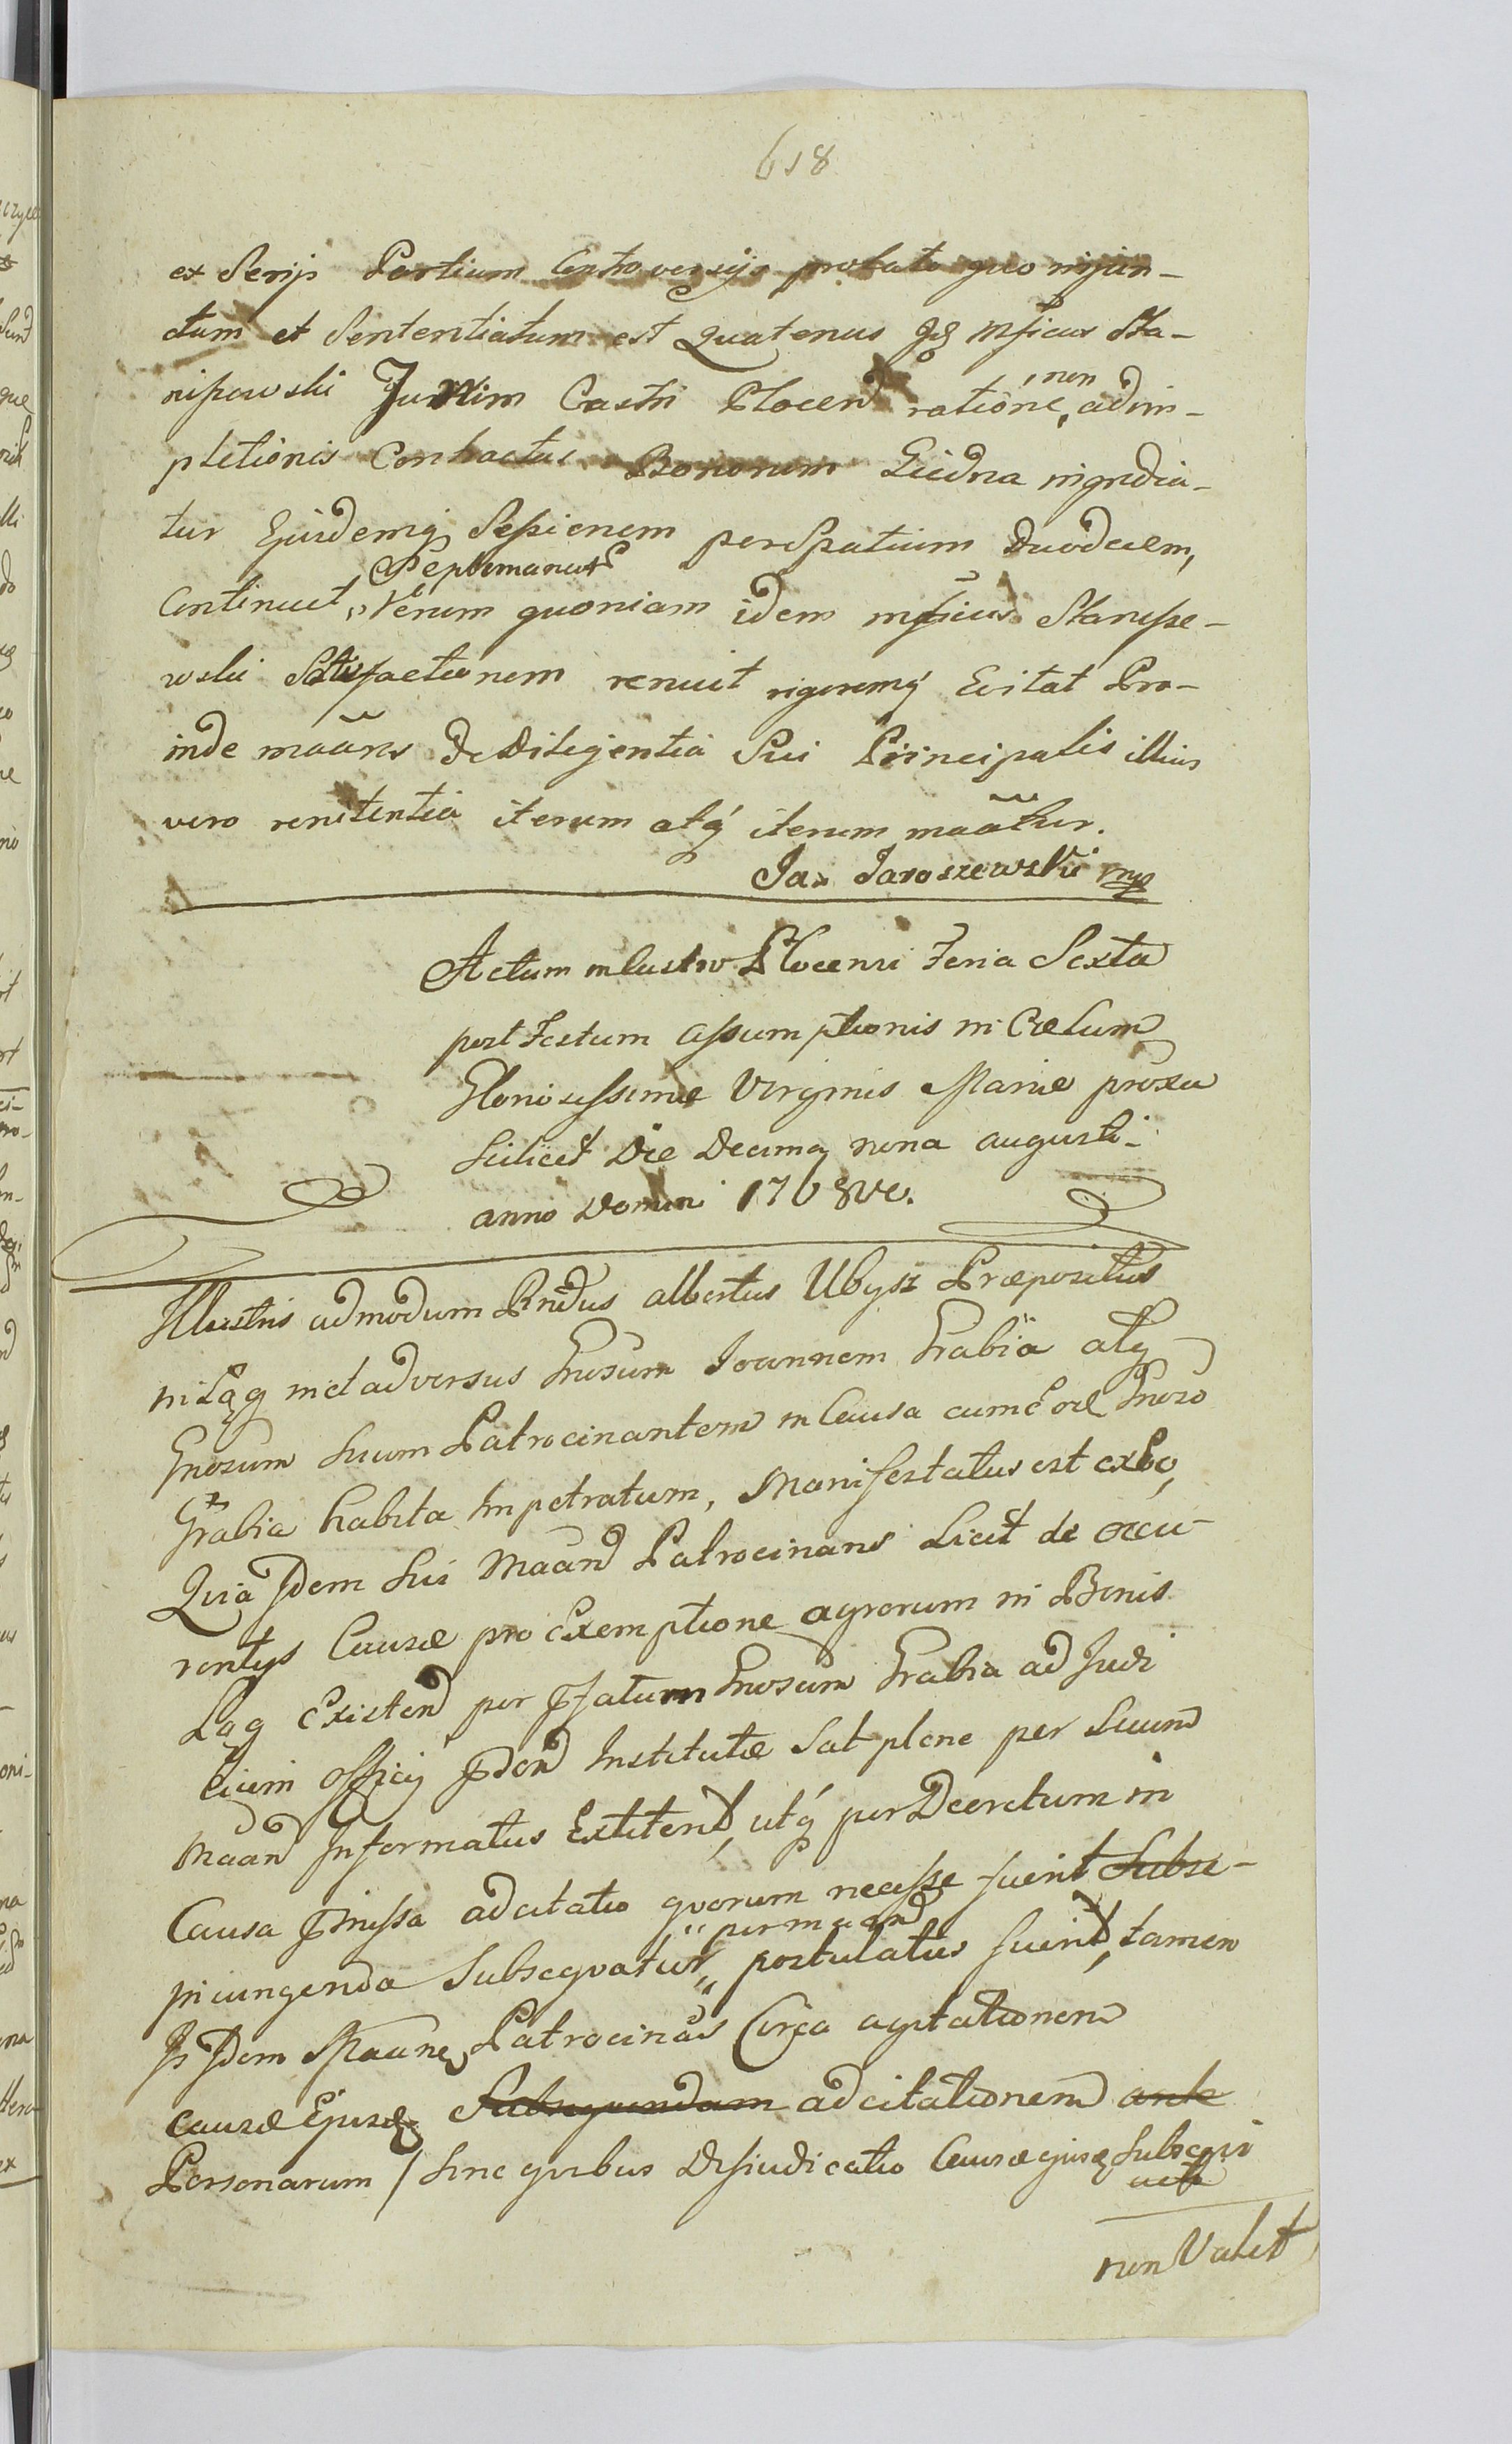 618
ex Serijs Partium Controversijs probato quo injun-
ctum et Sententiatum est Quatenus Mficus Sta-
nisewski Turrim Castri Plocen ratione non adim-
pletionis Contractus Bonorum ingredia-
tur Ejusdemq Sessionem per Spatium Duodecem,
Septimanar
Continuet, Verum quoniam idem mficus Stanisze-
wski Satisfactionem renuit rigoremq Evitat Pro-
inde maãns De Diligentia Sui Principalis illius
vero renitentia iterum atq iterum maãtur.
Jaroszewski mp
Actum in Castro Plocensi Feria Sexta
post Festum Assumptionis in Cælum
Gloriosissimæ Virginis Mariæ proxa
Scilicet Die Decima nona augusti
anno Domini 1768vo.
Illustris admodum Rndus albertus Ubysz Præpositus
in Łąg in et adversus Gnosum Joannem Grabia atq
Gnosum Suum Patrocinantem in Causa cum Gnoso
Grabia habita Impetratum, Manifestatus est ex Eo,
Quia Idem Sui Maan Patrocinans Licet de occu-
rentijs Causæ pro Exemptione agrorum in Bonis
Łąg Existen per Gnosum Grabia ad Judi
cium Officij Institutæ Sat plene per Suum
Maan Informatus Extiterit, utq per Decretum in
Causa adcitatio quorum necesse fuerit Subse-
per maan
piungenda Subsequatur, postulatus fuerit, tamen
Is Idem Patrocinãs Circa agitationem
causæ Ejusd Subsequendam adcitationem ante
Personarum / Sine quibus Disiudicatio Causæ ejusd Subsequi
non Valet